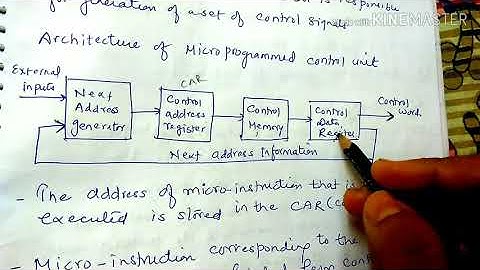 for generation of a set of control signals
MADE WITH
KINEMASTER
Architecture of Microprogrammed control unit
External
inputs
Next
Address
generator
CAR
Control
address
register
Control
Memory
Control
Data
Register
Control
word
Next address Information
- The address of micro-instruction that is
executed is stored in the CAR
- Micro-instruction corresponding to the